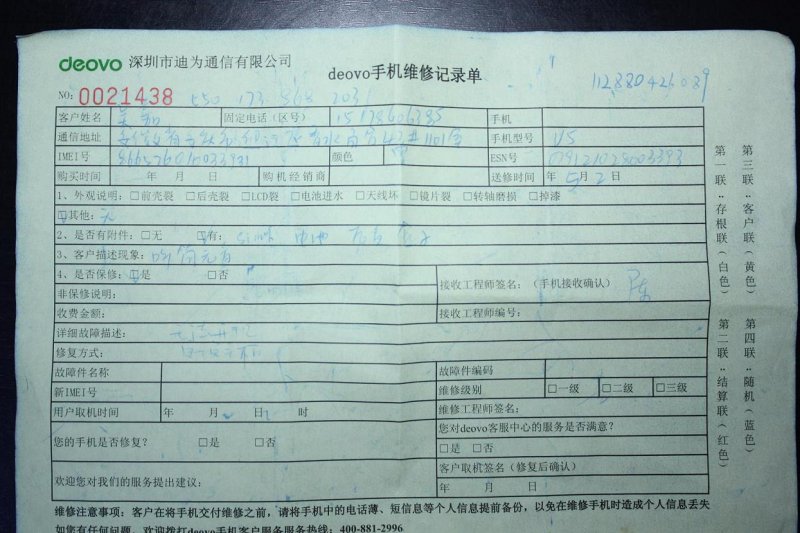 deovo 深圳市迪为通信有限公司
deovo手机维修记录单
112880426039
NO: 0021438
客户姓名 固定电话（区号） 15178606385 手机
通信地址 手机型号 V5
IMEI号 颜色 ESN号
购买时间 年 月 日 购机经销商 送修时间 年 5月2日
1、外观说明：□前壳裂 □后壳裂 □LCD裂 □电池进水 □天线坏 □镜片裂 □转轴磨损 □掉漆
□其他：无
2、是否有附件：□无 □有：
3、客户描述现象：
4、是否保修：□是 □否
非保修说明：
接收工程师签名：（手机接收确认） 陈
收费金额：
接收工程师编号：
详细故障描述：
修复方式：
故障件名称 故障件编码
新IMEI号 维修级别 □一级 □二级 □三级
用户取机时间 年 月 日 时 维修工程师签名：
您的手机是否修复？ □是 □否
您对deovo客服中心的服务是否满意？
□是 □否
客户取机签名（修复后确认）
欢迎您对我们的服务提出建议：
年 月 日
维修注意事项：客户在将手机交付维修之前，请将手机中的电话薄、短信息等个人信息提前备份，以免在维修手机时造成个人信息丢失
如您有任何问题，欢迎拨打deovo手机客户服务服务热线：400-881-2996
第一联：存根联（白色）
第二联：结算联（红色）
第三联：客户联（黄色）
第四联：随机（蓝色）